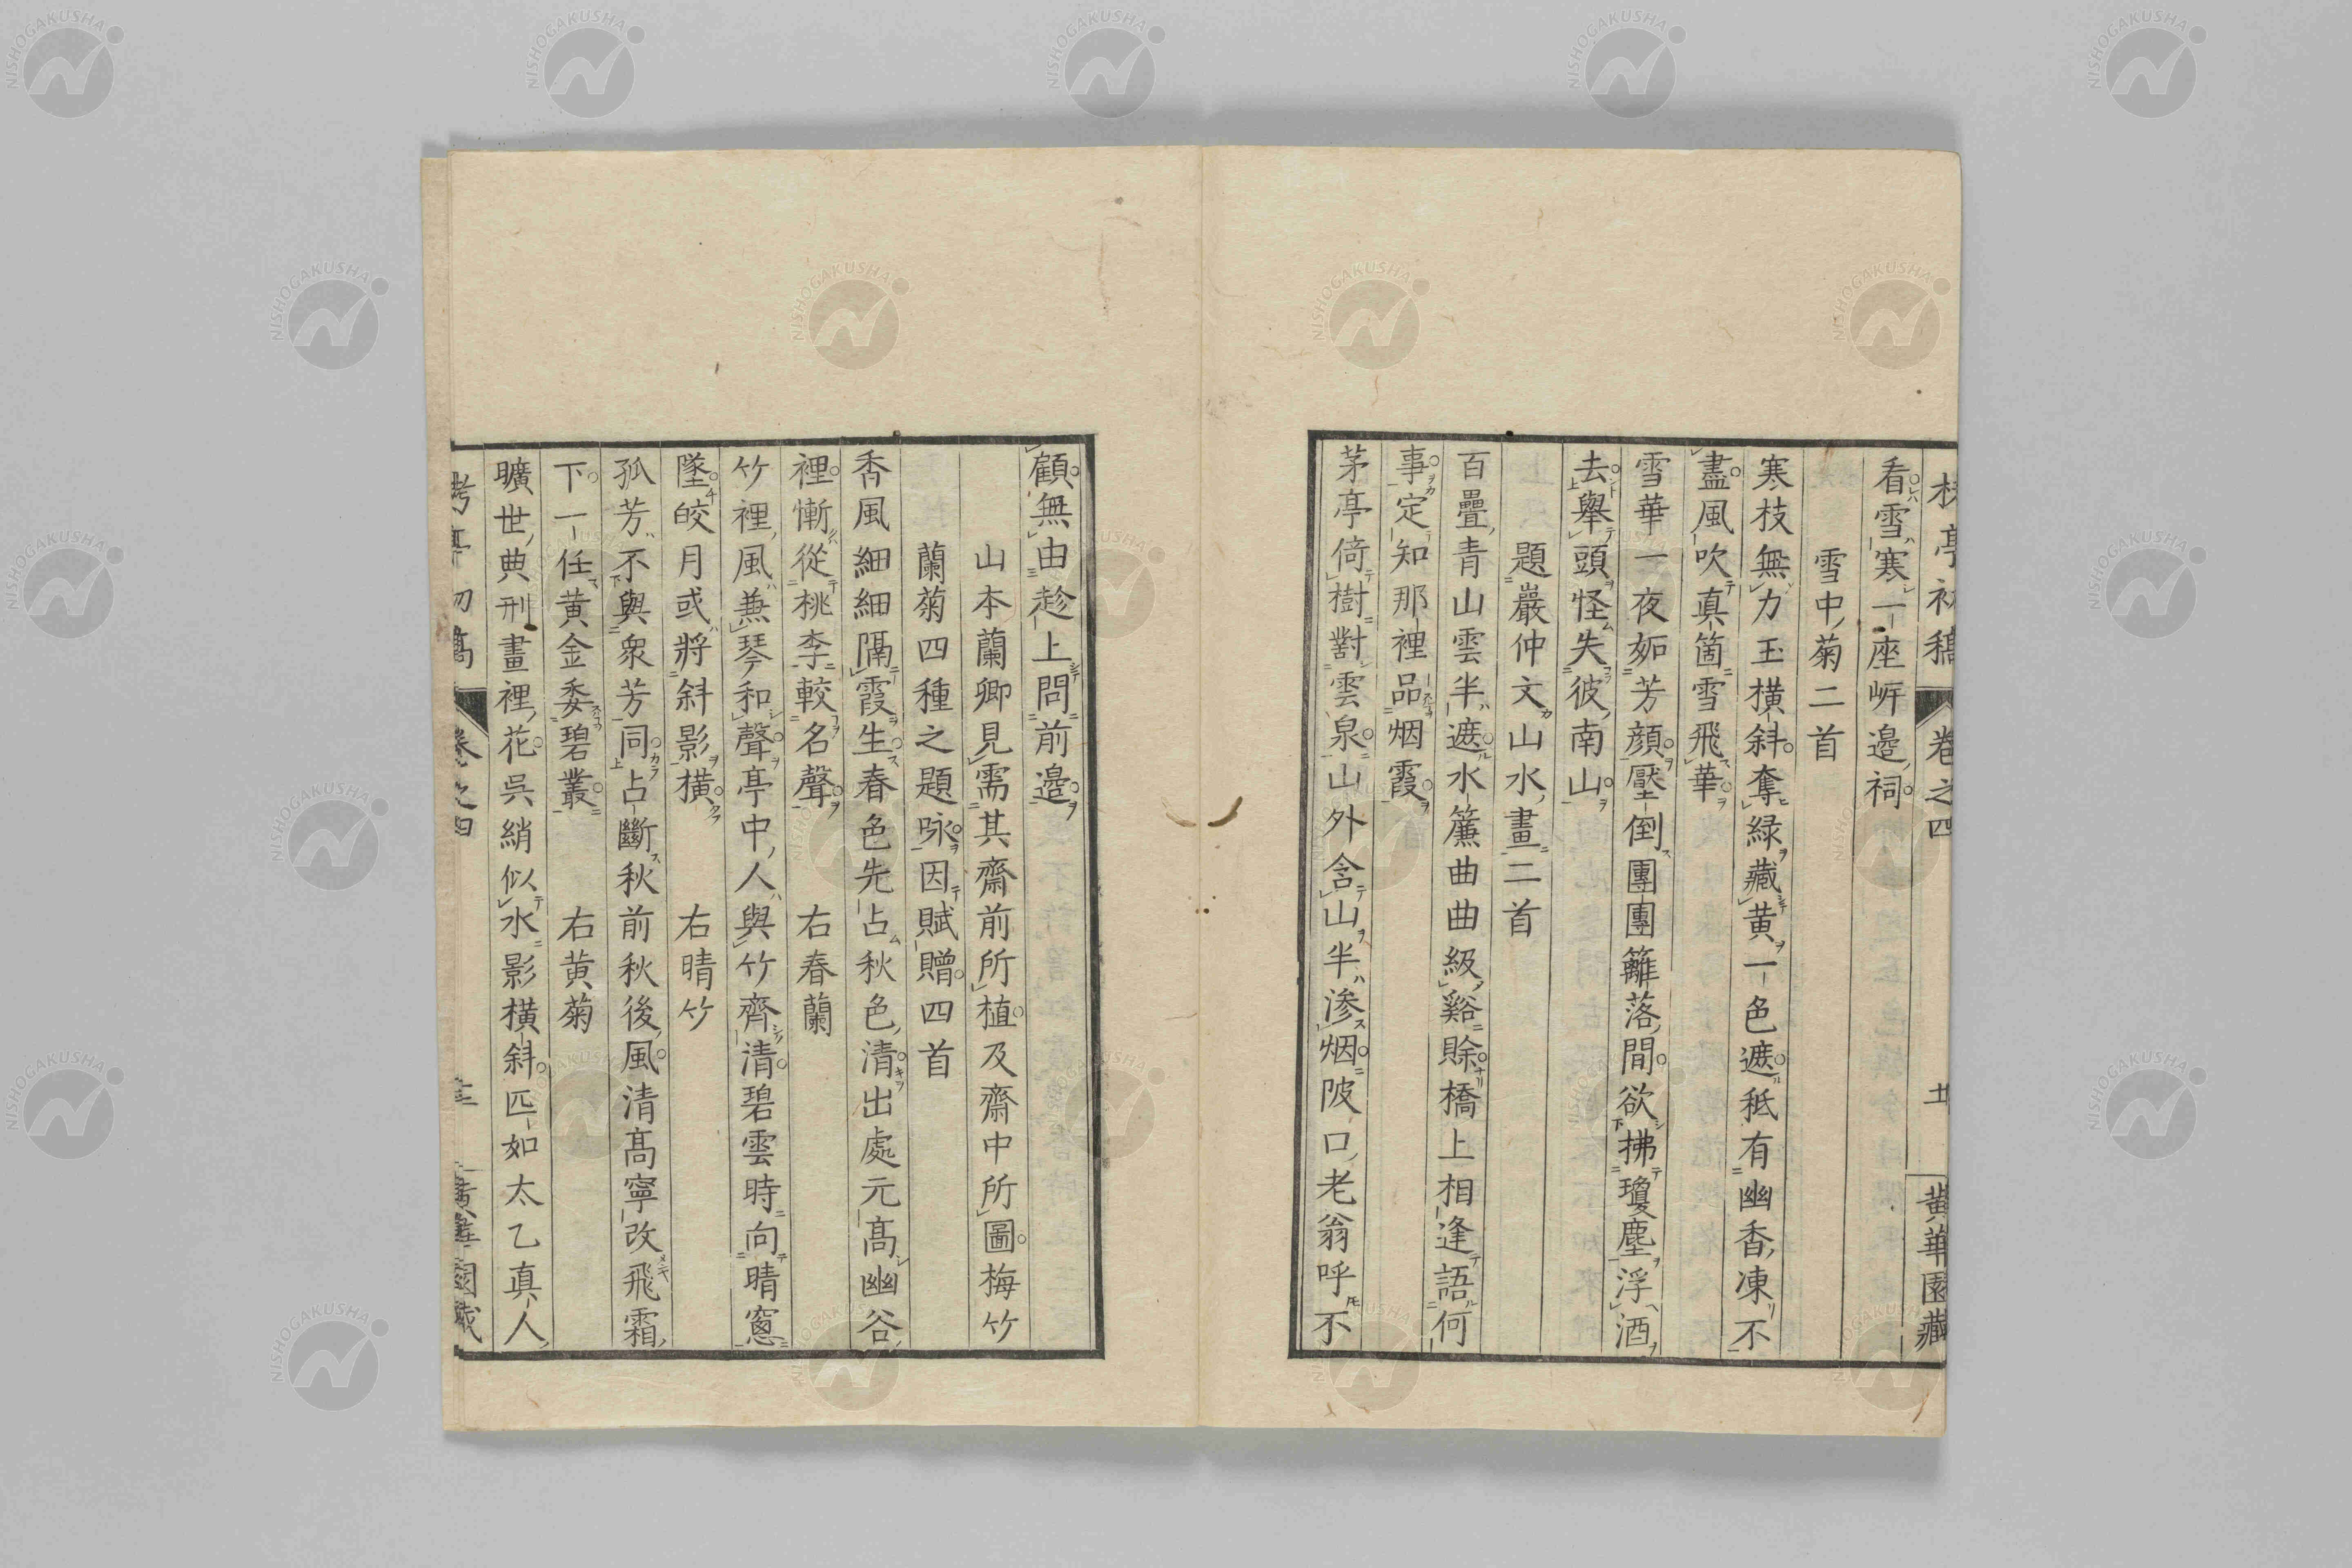 亭初稿 卷之四 廿 黄華園藏
看雪寒一座㟁邉祠
雪中菊二首
寒枝無力玉橫斜奪緑藏黄一色遮秪有幽香凍不
盡風吹真箇雪飛華
雪華一夜妬芳顔壓倒團團籬落間欲拂瓊塵浮酒
去舉頭怪失彼南山
題巖仲文山水畫二首
百疊青山雲半遮水簾曲曲級谿賒橋上相逢語何
事定知那裡品烟霞
茅亭倚樹對雲泉山外含山半滲烟陂口老翁呼不
顧無由趁上問前邉
山本蘭卿見需其齋前所植及齋中所圖梅竹
蘭菊四種之題咏因賦贈四首
香風細細隔霞生春色先占秋色清出處元髙幽谷
裡慚從桃李較名聲 右春蘭
竹裡風兼琴和聲亭中人與竹齊清碧雲時向晴窓
墜皎月或將斜影橫 右晴竹
孤芳不與衆芳同占斷秋前秋後風清髙寧改飛霜
下一任黄金委碧叢 右黄菊
曠世典刑畫裡花呉綃似水影橫斜匹如太乙真人
亭初稾 卷之四